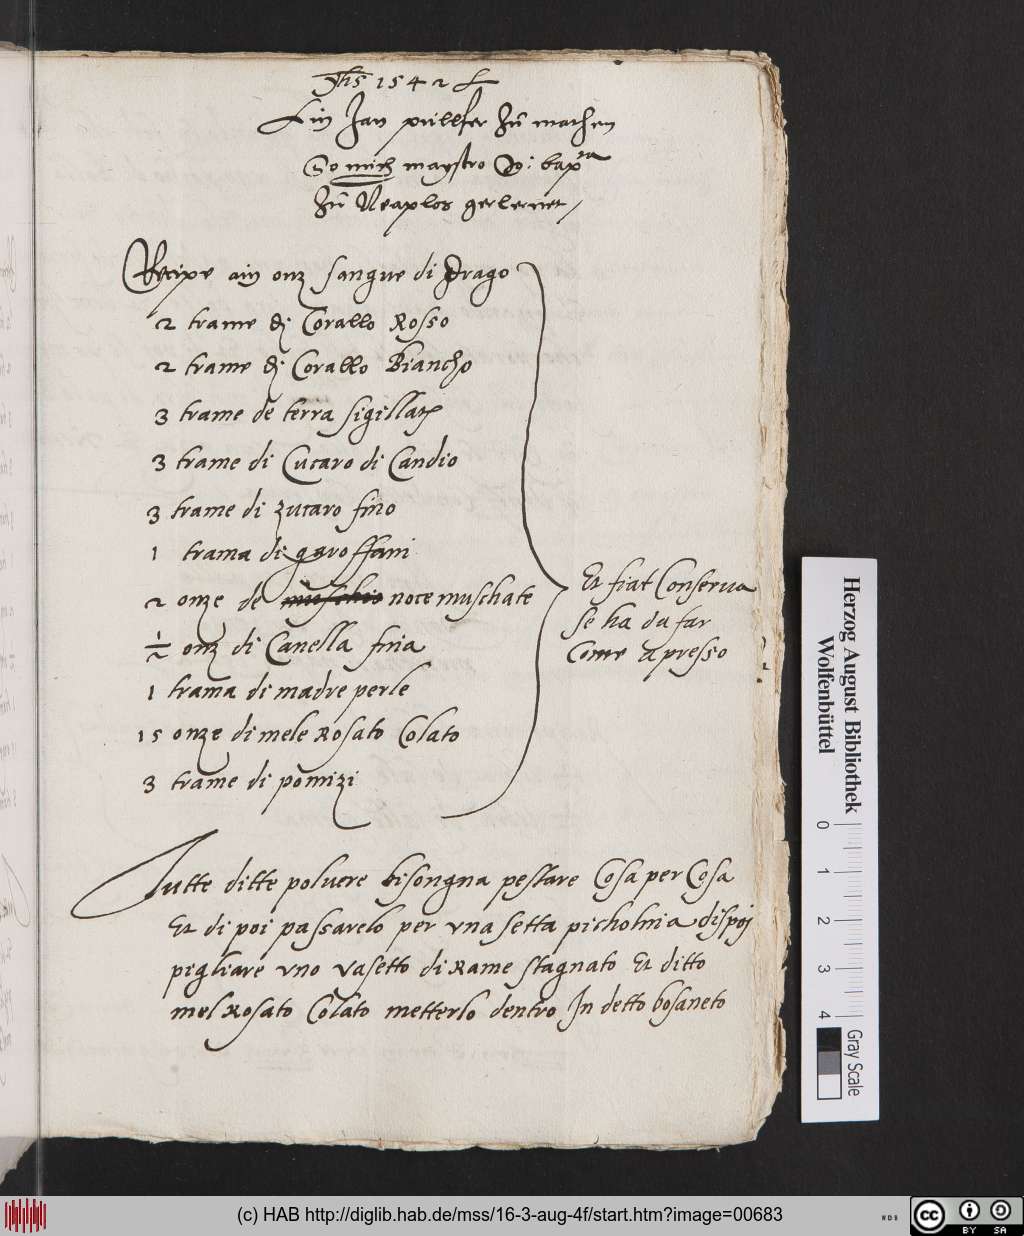 Jhs 1542
Ein Zan pullfer Zů machen
So mich maystro bap^ta
Zů Neaplos gerlernet /
Recipe ain onz sangue di Drago
2 trame di Corallo Rosso
2 trame di Corallo Biancho
3 trame de terra sigillata
3 trame di Cucaro di Candio
3 trame di zucaro fino
1 trama di garoffani
2 onze de muschio noce muschate
½ onz di Canella fina
1 trama di madre perle
15 onze di mele Rosato Colato
3 trame di pomizi
Et fiat Conserua
se ha da far
Come apresso
Tutte ditte poluere bisongna pestare Cosa per Cosa
Et di poi passarelo per vna setta picholnia dispoj
pigliare vno vasetto di Rame stagnato Et ditto
mel Rosato Colato metterlo dentro In detto bosaneto
Herzog August Bibliothek
Wolfenbüttel
0 1 2 3 4
Gray Scale
(c) HAB http://diglib.hab.de/mss/16-3-aug-4f/start.htm?image=00683
WDB
cc BY SA